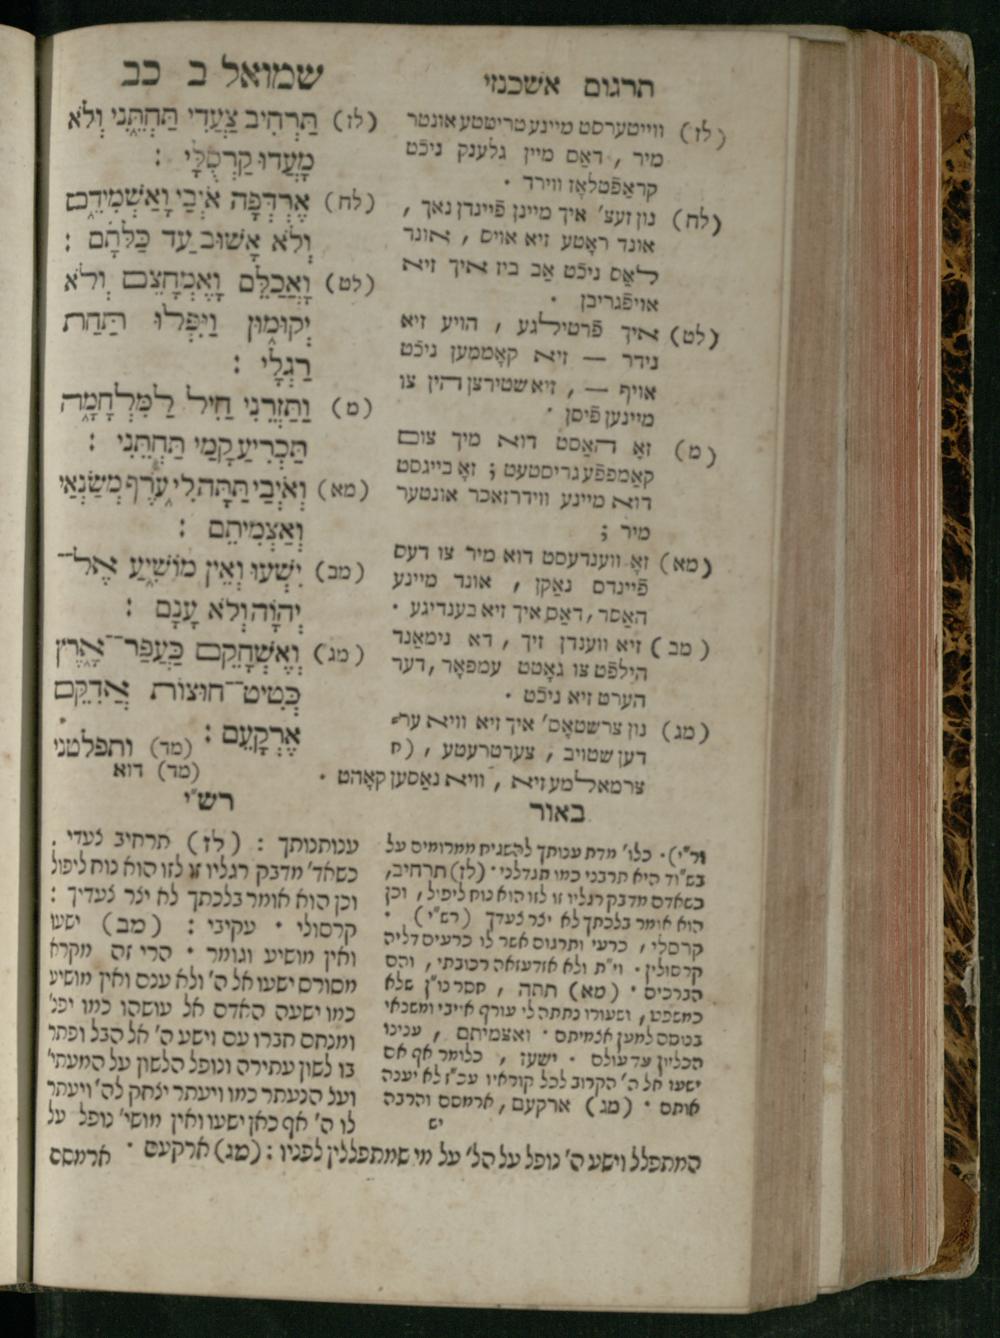 תרגום אשכנזי
שמואל ב כב
(לז) תַּרְחִיב צַעֲדִי תַּחְתֵּנִי וְלֹא
מָעֲדוּ קַרְסֻלָּי :
(לח) אֶרְדְּפָה אֹיְבַי וָאַשְׁמִידֵם
וְלֹא אָשׁוּב עַד כַּלֹּתָם :
(לט) וָאֲכַלֵּם וָאֶמְחָצֵם וְלֹא
יְקוּמוּן וַיִּפְּלוּ תַּחַת
רַגְלָי :
(מ) וַתַּזְרֵנִי חַיִל לַמִּלְחָמָה
תַּכְרִיעַ קָמַי תַּחְתֵּנִי :
(מא) וְאֹיְבַי תַּתָּה לִּי עֹרֶף מְשַׂנְאַי
וָאַצְמִיתֵם :
(מב) יִשְׁעוּ וְאֵין מוֹשִׁיעַ אֶל־
יְהוָֹה וְלֹא עָנָם :
(מג) וְאֶשְׁחָקֵם כַּעֲפַר־אָרֶץ
כְּטִיט־חוּצוֹת אֲדִקֵּם
אֶרְקָעֵם :
(מד) ותפלטני
(לז) ווייטערסט מיינע טריטטע אונטר
מיר , דאַס מיין גלענק ניכֿט
קראַפֿטלאָז ווירד .
(לח) נון זעצ' איך מיינן פֿיינדן נאך ,
אונד ראָטע זיא אויס , אונד
לאַס ניכֿט אַב ביז איך זיא
אויפֿגריבן .
(לט) איך פֿרטילגע , הויע זיא
נידר — זיא קאָממען ניכֿט
אויף — , זיא שטירצן דהין צו
מיינען פֿיסן .
(מ) זאָ האַסט דוא מיך צום
קאַמפפֿע גריסטעט ; זאָ בייגסט
דוא מיינע ווידרזאכר אונטער
מיר ;
(מא) זאָ ווענדעסט דוא מיר צו דעס
פֿיינדס נאַקן , אונד מיינע
האַסר , דאַס איך זיא בענדיגע .
(מב) זיא ווענדן זיך , דא נימאַנד
הילפֿט צו גאָטט עמפאָר , דער
הערט זיא ניכֿט .
(מג) נון צרשטאָס' איך זיא וויא ער־
דען שטויב , צערטרעטע ,
צרמאלמע זיא , וויא נאַסען קאָהט .
(מד) דוא
באור
רש"י
ענותנותך : (לז) תרחיב צעדי .
כשאד' מדבק רגליו זו לזו הוא נוח ליפול
וכן הוא אומר בלכתך לא יצר צעדיך :
קרסולי . עקיבי : (מב) ישעו
ואין מושיע וגומר . הרי זה מקרא
מסורס ישעו אל ה' ולא ענם ואין מושיע
כמו ישעה האדם אל עושהו כמו יפנ'
ומנחם חברו עם וישע ה' אל הבל ופתר
בו לשון עתירה ונופל הלשון על המעתי'
ועל הנעתר כמו ויעתר יצחק לה' ויעתר
לו ה' אף כאן ישעו ואין מושי' נופל על
רד"י) . כלו' מדת ענותך להשגיח ממרומים על
בש"וד היא תרבני כמו תגדלני . (לז) תרחיב ,
כשאדם מדבק רגליו זו לזו הוא נוח ליפול , וכן
הוא אומר בלכתך לא יצר צעדך (רש"י) .
קרסלי , כרעי ותרגום אשר לו כרעים דליה
קרסולין . וי"ת ולא אזדעזאה רכובתי , והם
הברכים . (מא) תתה , חסר נו"ן שלא
כמשפט , ושעורו נתתה לי עורף אויבי ומשנאי
בנוסם למען אצמיתם . ואצמיתם , ענינו
הכליון עד עולם . ישעו , כלומר אף אם
ישעו אל ה' הקרוב לכל קוראיו עכ"ז לא יענה
אותם . (מג) ארקעם , ארמסם והרבה
יש
המתפלל וישע ה' נופל על הל' על מי שמתפללין לפניו : (מג) ארקעם . ארמסם